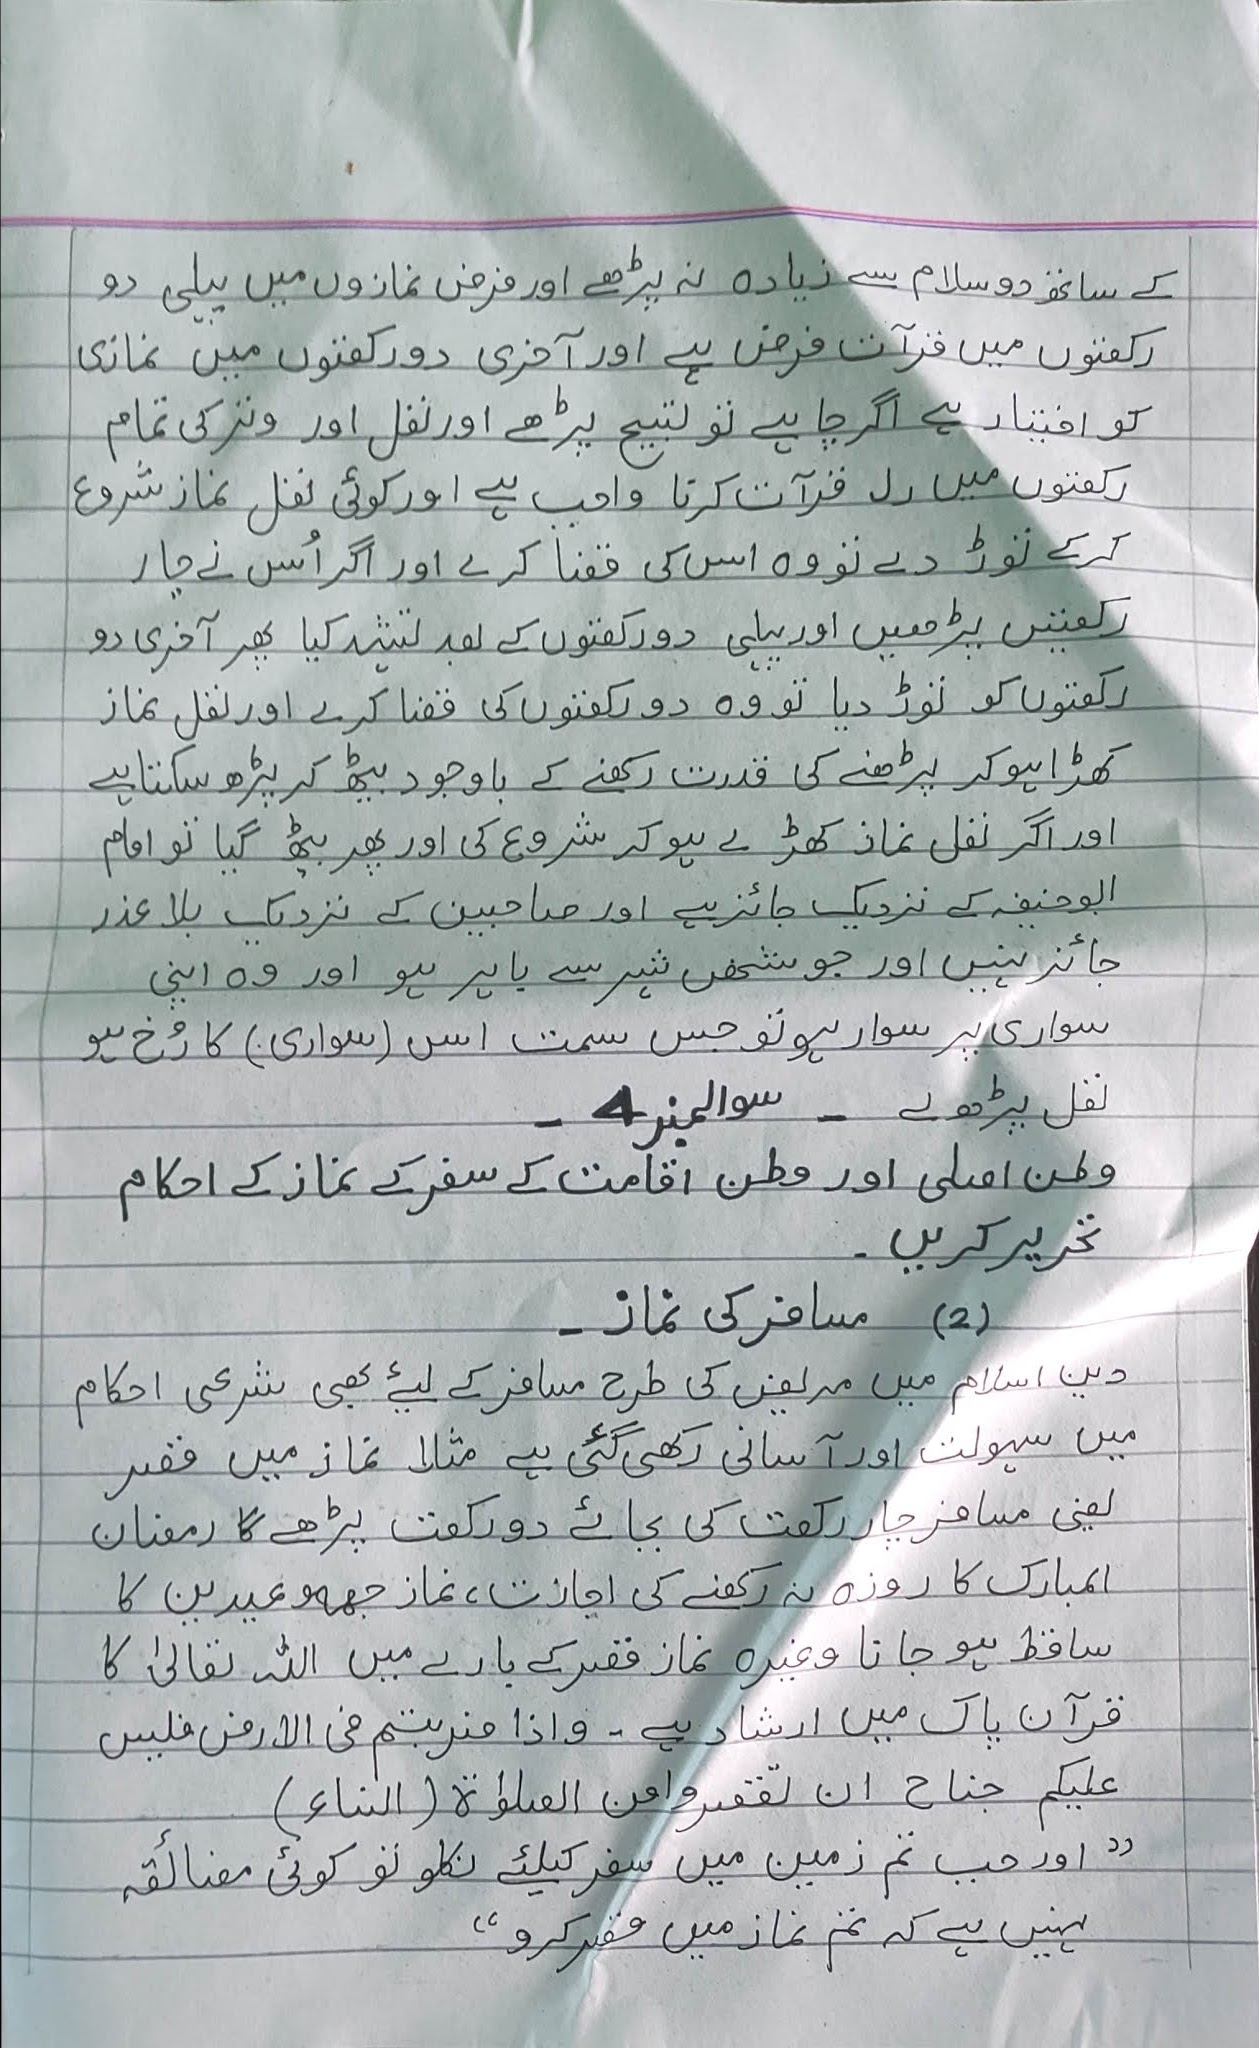 کے ساتھ دو سلام سے زیادہ نہ پڑھے اور فرض نمازوں میں پہلی دو
رکعتوں میں قرآت فرض ہے اور آخری دو رکعتوں میں نمازی
کو اختیار ہے اگر چاہیے تو تسبیح پڑھے اور نفل اور وتر کی تمام
رکعتوں میں قرآت کرنا واجب ہے اور کوئی نفل نماز شروع
کرکے توڑ دے تو وہ اس کی قضا کرے اور اگر اُس نے چار
رکعتیں پڑھیں اور پہلی دو رکعتوں کے بعد تشہد کیا پھر آخری دو
رکعتوں کو توڑ دیا تو وہ دو رکعتوں کی قضا کرے اور نفل نماز
کھڑا ہو کر پڑھنے کی قدرت رکھنے کے باوجود بیٹھ کر پڑھ سکتا ہے
اور اگر نفل نماز کھڑے ہو کر شروع کی اور پھر بیٹھ گیا تو امام
ابوحنیفہ کے نزدیک جائز ہے اور صاحبین کے نزدیک بلا عذر
جائز نہیں اور جو شخص شہر سے باہر ہو اور وہ اپنی
سواری پر سوار ہو تو جس سمت اس (سواری) کا رُخ ہو
نفل پڑھ لے ۔ سوال نمبر 4 ۔
وطن اصلی اور وطن اقامت کے سفر کے نماز کے احکام
تحریر کریں ۔
(2) مسافر کی نماز ۔
دین اسلام میں مریض کی طرح مسافر کے لیئے بھی شرعی احکام
میں سہولت اور آسانی رکھی گئی ہے مثلا نماز میں قصر
یعنی مسافر چار رکعت کی بجائے دو رکعت پڑھے گا رمضان
المبارک کا روزہ نہ رکھنے کی اجازت، نماز جمعہ و عیدین کا
ساقط ہو جانا وغیرہ نماز قصر کے بارے میں اللہ تعالیٰ کا
قرآن پاک میں ارشاد ہے ۔ واذا ضربتم فی الارض فلیس
علیکم جناح ان تقصروا من الصلوٰۃ (النساء)
” اور جب تم زمین میں سفر کیلئے نکلو تو کوئی مضائقہ
نہیں ہے کہ تم نماز میں قصر کرو “